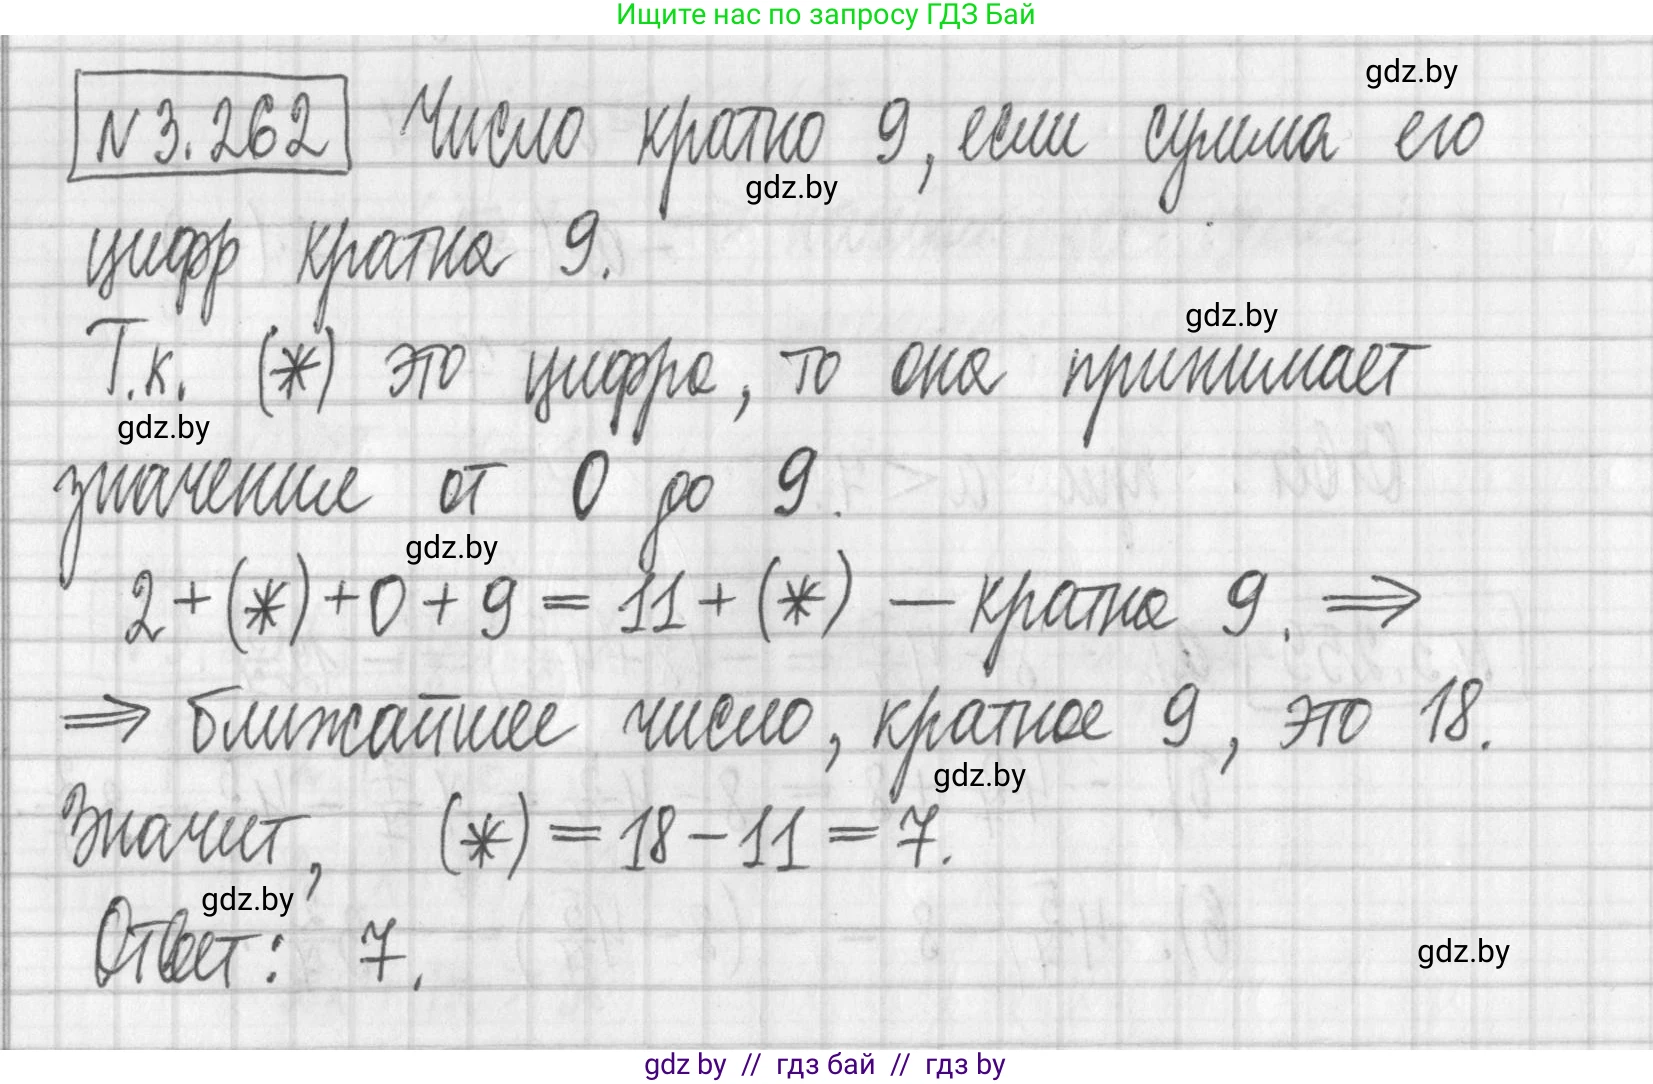 Ищите нас по запросу ГДЗ Бай
gdz.by
N 3.262 Число кратно 9, если сумма его
gdz.by
цифр кратна 9.
gdz.by
Т.к. (*) это цифра, то она принимает
gdz.by
значения от 0 до 9.
gdz.by
2+(*)+0+9=11+(*) — кратна 9. ⇒
⇒ ближайшее число, кратное 9, это 18.
gdz.by
Значит, (*)=18-11=7.
gdz.by
Ответ: 7.
gdz.by
gdz by // гдз бай // гдз by